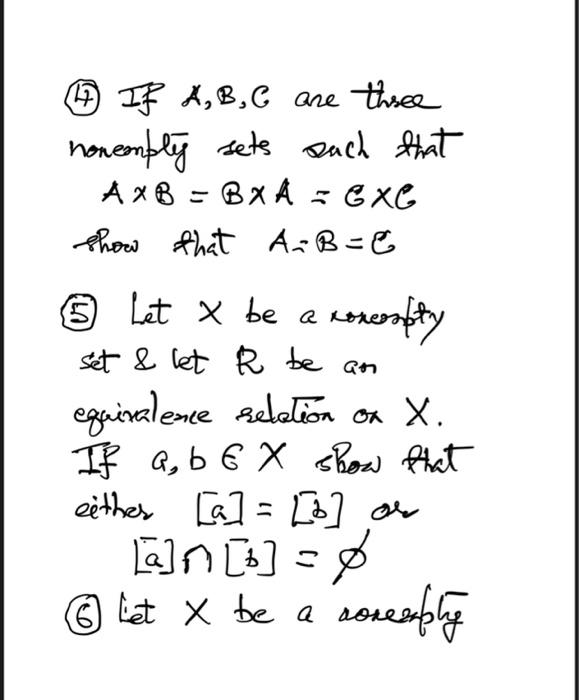 ④ If A, B, C are three
nonempty sets such that
A × B = B × A = C × C
show that A = B = C
⑤ Let X be a nonempty
set & let R be an
equivalence relation on X.
If a, b ∈ X show that
either [a] = [b] or
[a] ∩ [b] = ∅
⑥ Let X be a nonempty